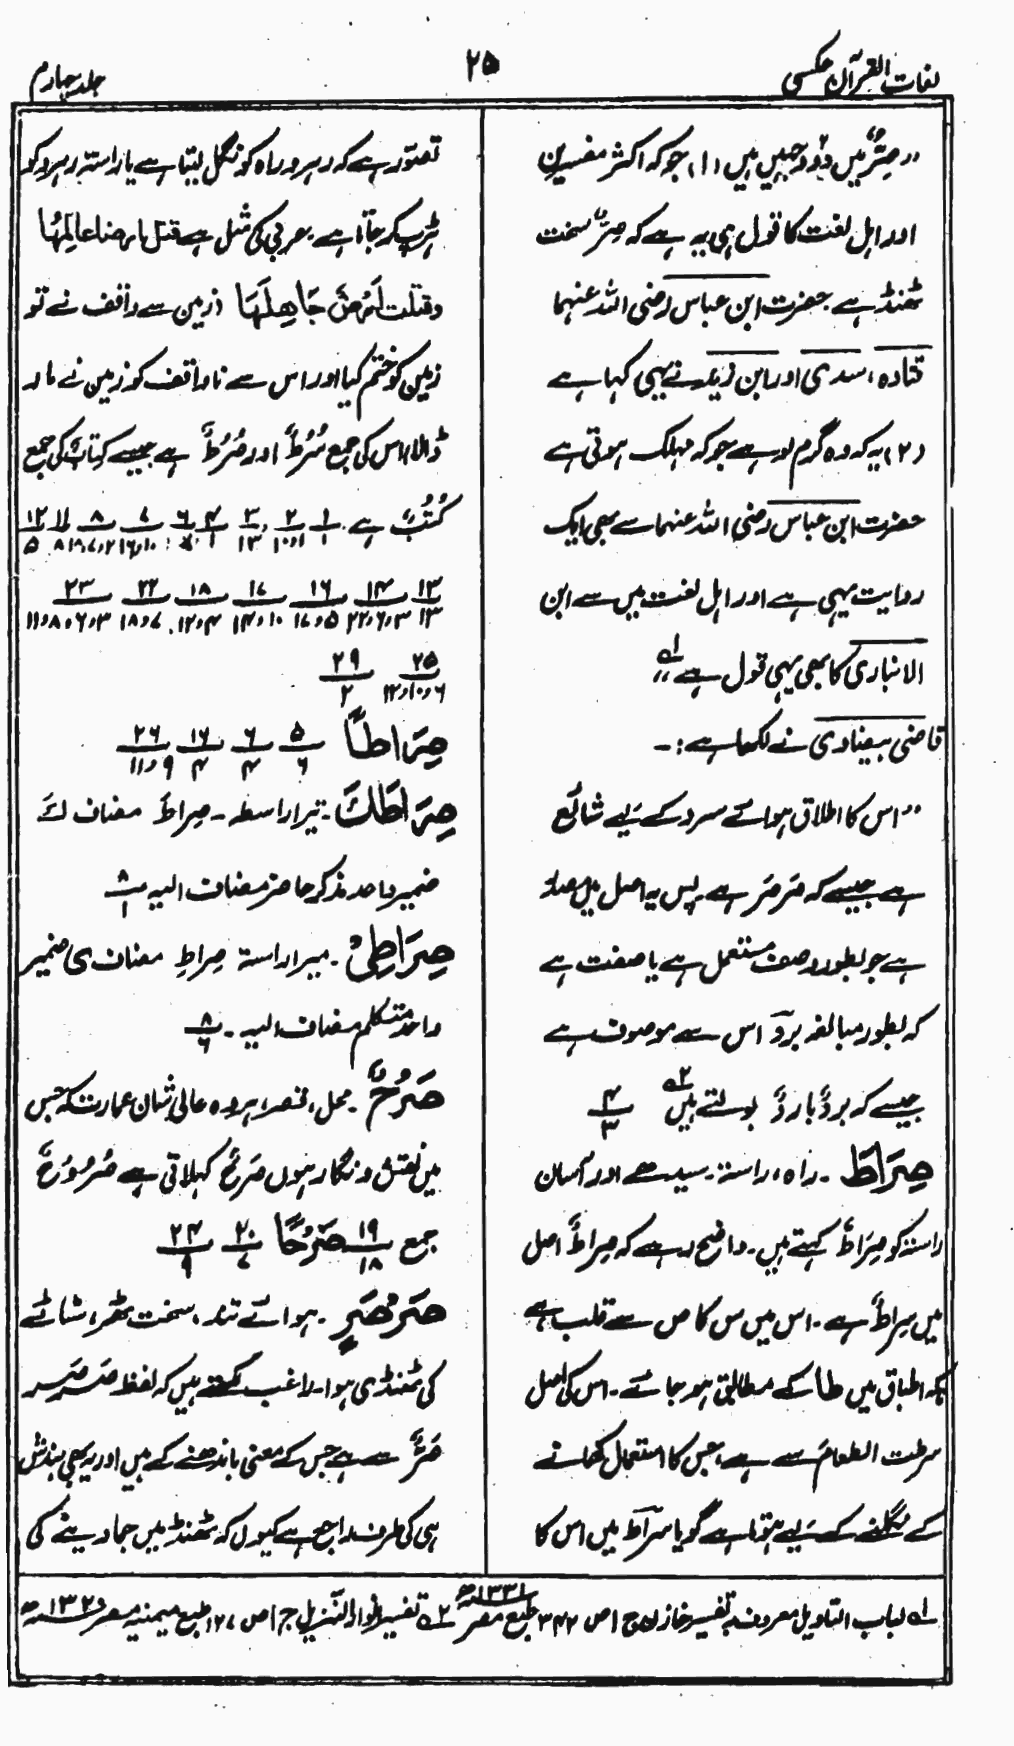 لغات القرآن عکسی
۲۵
جلد چہارم
"صِرٌّ میں دو وجہیں ہیں (۱) جو کہ اکثر مفسرین
اور اہل لغت کا قول ہی یہ ہے کہ صِرٌّ سخت
ٹھنڈ ہے حضرت ابن عباس رضی اللہ عنہما
قتادہ، سدی اور ابن زید نے یہی کہا ہے
(۲) یہ کہ وہ گرم لو ہے جو کہ مہلک ہوتی ہے
حضرت ابن عباس رضی اللہ عنہما سے بھی ایک
روایت یہی ہے اور اہل لغت میں سے ابن
الانباری کا بھی یہی قول ہے" لہ
قاضی بیضاوی نے لکھا ہے :-
"اس کا اطلاق ہوائے سرد کے لیے شائع
ہے جیسے کہ صَرصَر ہے پس یہ اصل میں مصدر
ہے جو بطور وصف مستعمل ہے یا صفت ہے
کہ بطور مبالغہ بردٌ اس سے موصوف ہے
جیسے کہ بردٌ باردٌ بولتے ہیں ۲ہ ۴/۳
صِرَاطَ ۔ راہ، راستہ ۔ سیدھے اور آسان
راستہ کو صِرَاطٌ کہتے ہیں ۔ واضح رہے کہ صِراطٌ اصل
میں سِراطٌ ہے ۔ اس میں س کا ص سے قلب ہے
تاکہ اطباق میں طا کے مطابق ہو جائے ۔ اس کی اصل
سرطت الطعام سے ہے، جس کا استعمال کھانے
کے نگلنے کے لیے ہوتا ہے گویا سراط میں اس کا
تصور ہے کہ رہرو راہ کو نگل لیتا ہے یا راستہ رہرو کو
ہڑپ کر جاتا ہے عربی کی مثل ہے قتل ارضا عالِمُها
وقتلت اَرْضٌ جَاهِلَهَا زمین سے واقف نے تو
زمین کو ختم کیا اور اس سے ناواقف کو زمین نے مار
ڈالا، اس کی جمع سُرُطٌ اور صُرُطٌ ہے جیسے کِتابٌ کی جمع
کُتُبٌ ہے ۔ ۱/۱
۱۳/۱۳
۲۵/۱۲،۱۰،۶ ۲۹/۲
صِرَاطًا ۵/۶ ۶/۴ ۱۶/۴ ۲۶/۱۱،۹
صِرَاطَكَ ۔ تیرا راستہ ۔ صِراطَ مضاف كَ
ضمیر واحد مذکر حاضر مضاف الیہ ۸/۱
صِرَاطِیْ ۔ میرا راستہ صِراطِ مضاف ی ضمیر
واحد متکلم مضاف الیہ ۔ ۸/۶
صَرْحٌ ۔ محل، قصر، ہر وہ عالی شان عمارت کہ جس
میں نقش و نگار ہوں صَرحٌ کہلاتی ہے صُرُوْحٌ
جمع ۱۹/۱۸ صَرْحًا ۲۰/۷ ۲۴/۹
صَرْصَرٍ ۔ ہوائے تند، سخت ٹھر، سناٹے
کی ٹھنڈی ہوا ۔ راغب لکھتے ہیں کہ لفظ صَرصَر
صَرٌّ سے ہے جس کے معنی باندھنے کے ہیں اور یہ بھی بندش
ہی کی طرف راجع ہے کیوں کہ ٹھنڈ میں جمادینے کی
لہ لباب التاویل معروف بہ تفسیر خازن ج۱ ص ۳۴۲ طبع مصر ۱۳۳۱ھ ۲ہ تفسیر انوار التنزیل ج۱ ص ۱۲۷ طبع میمنیہ مصر ۱۳۲۰ھ